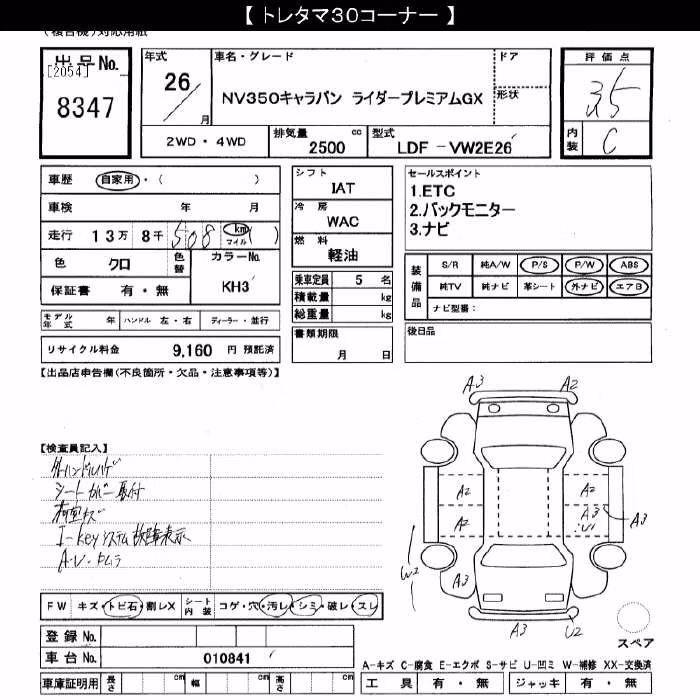 【 トレタマ30コーナー 】
(複合機)対応用紙
出品No.
[2054]
8347
年式
26／
月
車名・グレード
NV350キャラバン ライダープレミアムGX
ドア
形状
評価点
3.5
内装
C
2WD・4WD
排気量
2500
cc
型式
LDF－VW2E26
車歴 自家用・（ ）
車検 年 月
走行 13万 8千 508 km マイル ( )
色 クロ
色替
カラーNo.
KH3
保証書 有・無
シフト
IAT
冷房
WAC
燃料
軽油
乗車定員 5 名
積載量 kg
総重量 kg
書類期限
月 日
セールスポイント
1.ETC
2.バックモニター
3.ナビ
装備品
S/R 純A/W P/S P/W ABS
純TV 純ナビ 革シート 外ナビ エアB
ナビ型番：
後日品
モデル年式 年 ハンドル 左・右 ディーラー・並行
リサイクル料金 9,160 円 預託済
【出品店申告欄(不良箇所・欠品・注意事項等)】
【検査員記入】
シートカバー取付
荷室キズ
I-keyシステム故障表示
FW キズ・トビ石・割レX
シート内装
コゲ・穴・汚レ・シミ・破レ・スレ
登録No.
車台No. 010841
車庫証明用 長さ cm 幅 cm 高さ cm
A3 A2
A2 A2
A2 A3 U1 A3
W2
A3 A3
A3 U2
スペア
A-キズ C-腐食 E-エクボ S-サビ U-凹ミ W-補修 XX-交換済
工具 有・無 ジャッキ 有・無